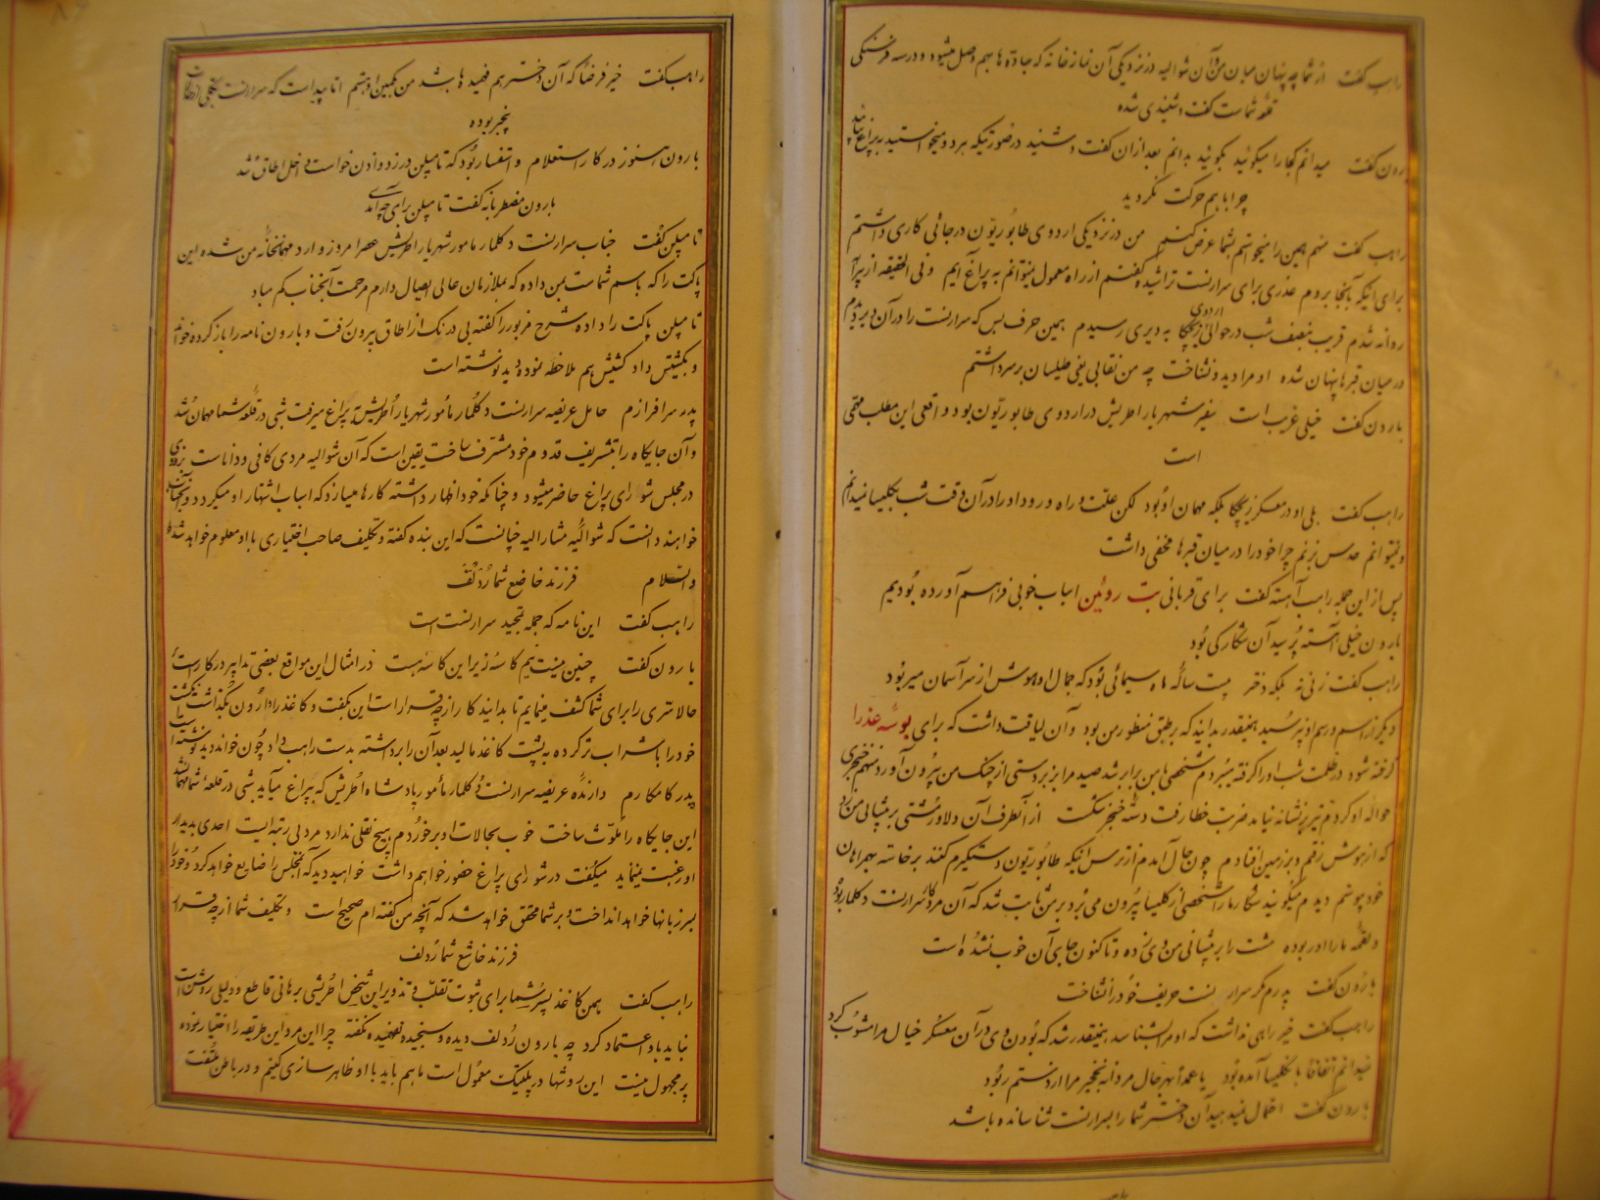 راهب گفت از شما چه پنهان میان من و آن شوالیه در نزدیکی آن نمازخانه که جاده ها بهم وصل میشود و در سه فرسنگی
قلعه شماست گفت و شنیدی شده
بارون گفت میدانم کجا را میگوئید بگوئید بدانم بعد از آن گفت و شنید در صورتیکه هر دو میخواستید به پراغ بیائید
چرا با هم حرکت نکردید
راهب گفت منهم همین را میخواستم بشما عرض کنم من در نزدیکی اردوی طابوریتون در جائی کاری داشتم
برای اینکه بآنجا بروم عذری برای سرارنست تراشیده گفتم از راه معمول نمیتوانم به پراغ آیم و فی الحقیقه از بیراه
روانه شدم قریب بنصف شب در حوالی اردوی زیچکا به دیری رسیدم همین حرف بس که سرارنست را در آن دیر دیدم
در میان قبرها پنهان شده او مرا دید و نشناخت چه من نقابی یعنی طیلسان بر سر داشتم
بارون گفت خیلی غریب است سفیر شهریار اطریش در اردوی طابوریتون بود واقعی این مطلب مهمی
است
راهب گفت بلی او در معسکر زیچکا بلکه مهمان او بود لکن علت و راه ورود او را در آن وقت شب بکلیسا نمیدانم
و نمیتوانم حدس بزنم چرا خود را در میان قبرها مخفی داشت
پس از این جمله راهب آهسته گفت برای قربانی بت روئین اسباب خوبی فراهم آورده بودیم
بارون خیلی آهسته پرسید آن شکار کی بود
راهب گفت زنی نه بلکه دختر بیست ساله ماه سیمائی بود که جمال او هوش از سر آسمان میربود
دیگر از اسم و رسم او نپرسید همینقدر بدانید که بر طبق منظور من بود و آن لیاقت داشت که برای بوسه عذرا
گرفته شود در ظلمت شب او را گرفته میبردم شخصی با من برابر شد صید مرا بزبردستی از چنگ من بیرون آورد منهم خنجری
حواله او کردم تیر بر نشانه نیامد ضربت خطا رفت دسته خنجر شکست از آنطرف آن دلاور مشتی بر پیشانی من زد
که از هوش رفتم و بر زمین افتادم چون بحال آمدم از ترس اینکه طابوریتون دستگیرم کنند برخاسته بهمراهان
خود پیوستم دیدم میگویند شکار ما را شخصی از کلیسا بیرون می برد بر من ثابت شد که آن مردکه سرارنست دکلمار بود
و لقمه ما را او ربوده مشت را بر پیشانی من وی زده و تا کنون جای آن خوب نشده است
بارون گفت پدرم مگر سرارنست حریف خود را نشناخت
راهب گفت خیر راهی نداشت که او مرا بشناسد همینقدر شد که بودن وی در آن معسکر خیال مرا مشوب کرد
نمیدانم اتفاقا بآنکلیسا آمده بود یا عمدا بهر حال مرد آنه نخجیر مرا از دستم ربود
بارون گفت احتمال نمیدهید آن دختر شما را بسرارنست شناسانده باشد
راهب گفت خیر فرضاً که آن دختر هم فهمیدها باشد من کیم و چه هستم اما پیداست که سرارنست بکلی از حالات
بیخبر بوده
بارون هنوز در کار استعلام و استفسار بود که تامپلن در زد و اذن خواست و داخل اطاق شد
بارون مضطربانه گفت تامپلن برای چه آمدی
تامپلن گفت جناب سرارنست دکلمار مامور شهریار اطریش عصر امروز وارد مهمانخانه من شده این
پاکت را که باسم شماست بمن داده که بملازمان عالی ایصال دارم مرحمت آنجناب کم مباد
تامپلن پاکت را داده شرح مزبور را گفته بی درنگ از اطاق بیرون رفت و بارون نامه را باز کرده خواند
و بکشیش داد کشیش هم ملاحظه نمود دید نوشته است
پدر سرافرازم حامل عریضه سرارنست دکلمار مأمور شهریار اطریش به پراغ میرفت شبی در قلعه شما مهمان شد
و آن جایگاه را بتشریف قدوم خود مشرف ساخت یقین است که آن شوالیه مردی کافی و داناست بزودی
در مجلس شورای پراغ حاضر میشود و چنانکه خود اظهار داشته کارها میسازد که اسباب اشتهار او میگردد و آنجناب
خواهند دانست که شوالیه مشارالیه چنانست که این بنده گفته و تکلیف صاحب اختیاری با او معلوم خواهد شد
والسلام فرزند خاضع شما رُدُلف
راهب گفت این نامه که جمله تمجید سرارنست است
بارون گفت چنین نیست نیم کاسه زیر این کاسه هست در امثال این مواقع بعضی تدابیر در کار است
حالا سری را برای شما کشف مینمایم تا بدانید کار از چه قرار است این بگفت و کاغذ را وارون بگذاشت انگشت
خود را با شراب تر کرده به پشت کاغذ مالید بعد آن را برداشته بدست راهب داد چون خواند دید نوشته است
پدر کامکارم دارنده عریضه سرارنست دکلمار مأمور پادشاه اطریش که به پراغ میآید شبی در قلعه شما مهمان شد
این جایگاه را ملوث ساخت خوب بحالات او برخوردم هیچ نقلی ندارد مردی بی رتبه ایست احدی بدیدار
او رغبت نمینماید میگفت در شورای پراغ حضور خواهم داشت خواهید دید که آنمجلس را ضایع خواهد کرد و خود را
بسر زبانها خواهد انداخت و بر شما محقق خواهد شد که آنچه من گفته ام صحیح است و تکلیف شما از چه قرار
فرزند خاشع شما رُدلف
راهب گفت همین کاغذ پسر شما برای ثبوت تقلب و تذویر این شخص اطریشی برهانی قاطع و دلیلی روشن است
نباید باو اعتماد کرد چه بارون رُدلف دیده و سنجیده و نفهمیده نگفته چرا این مرد این طریقه را اختیار نموده
پر مجهول نیست این روشها در پلتیک معمول است ما هم باید با او ظاهرسازی کنیم و در باطن ملتفت